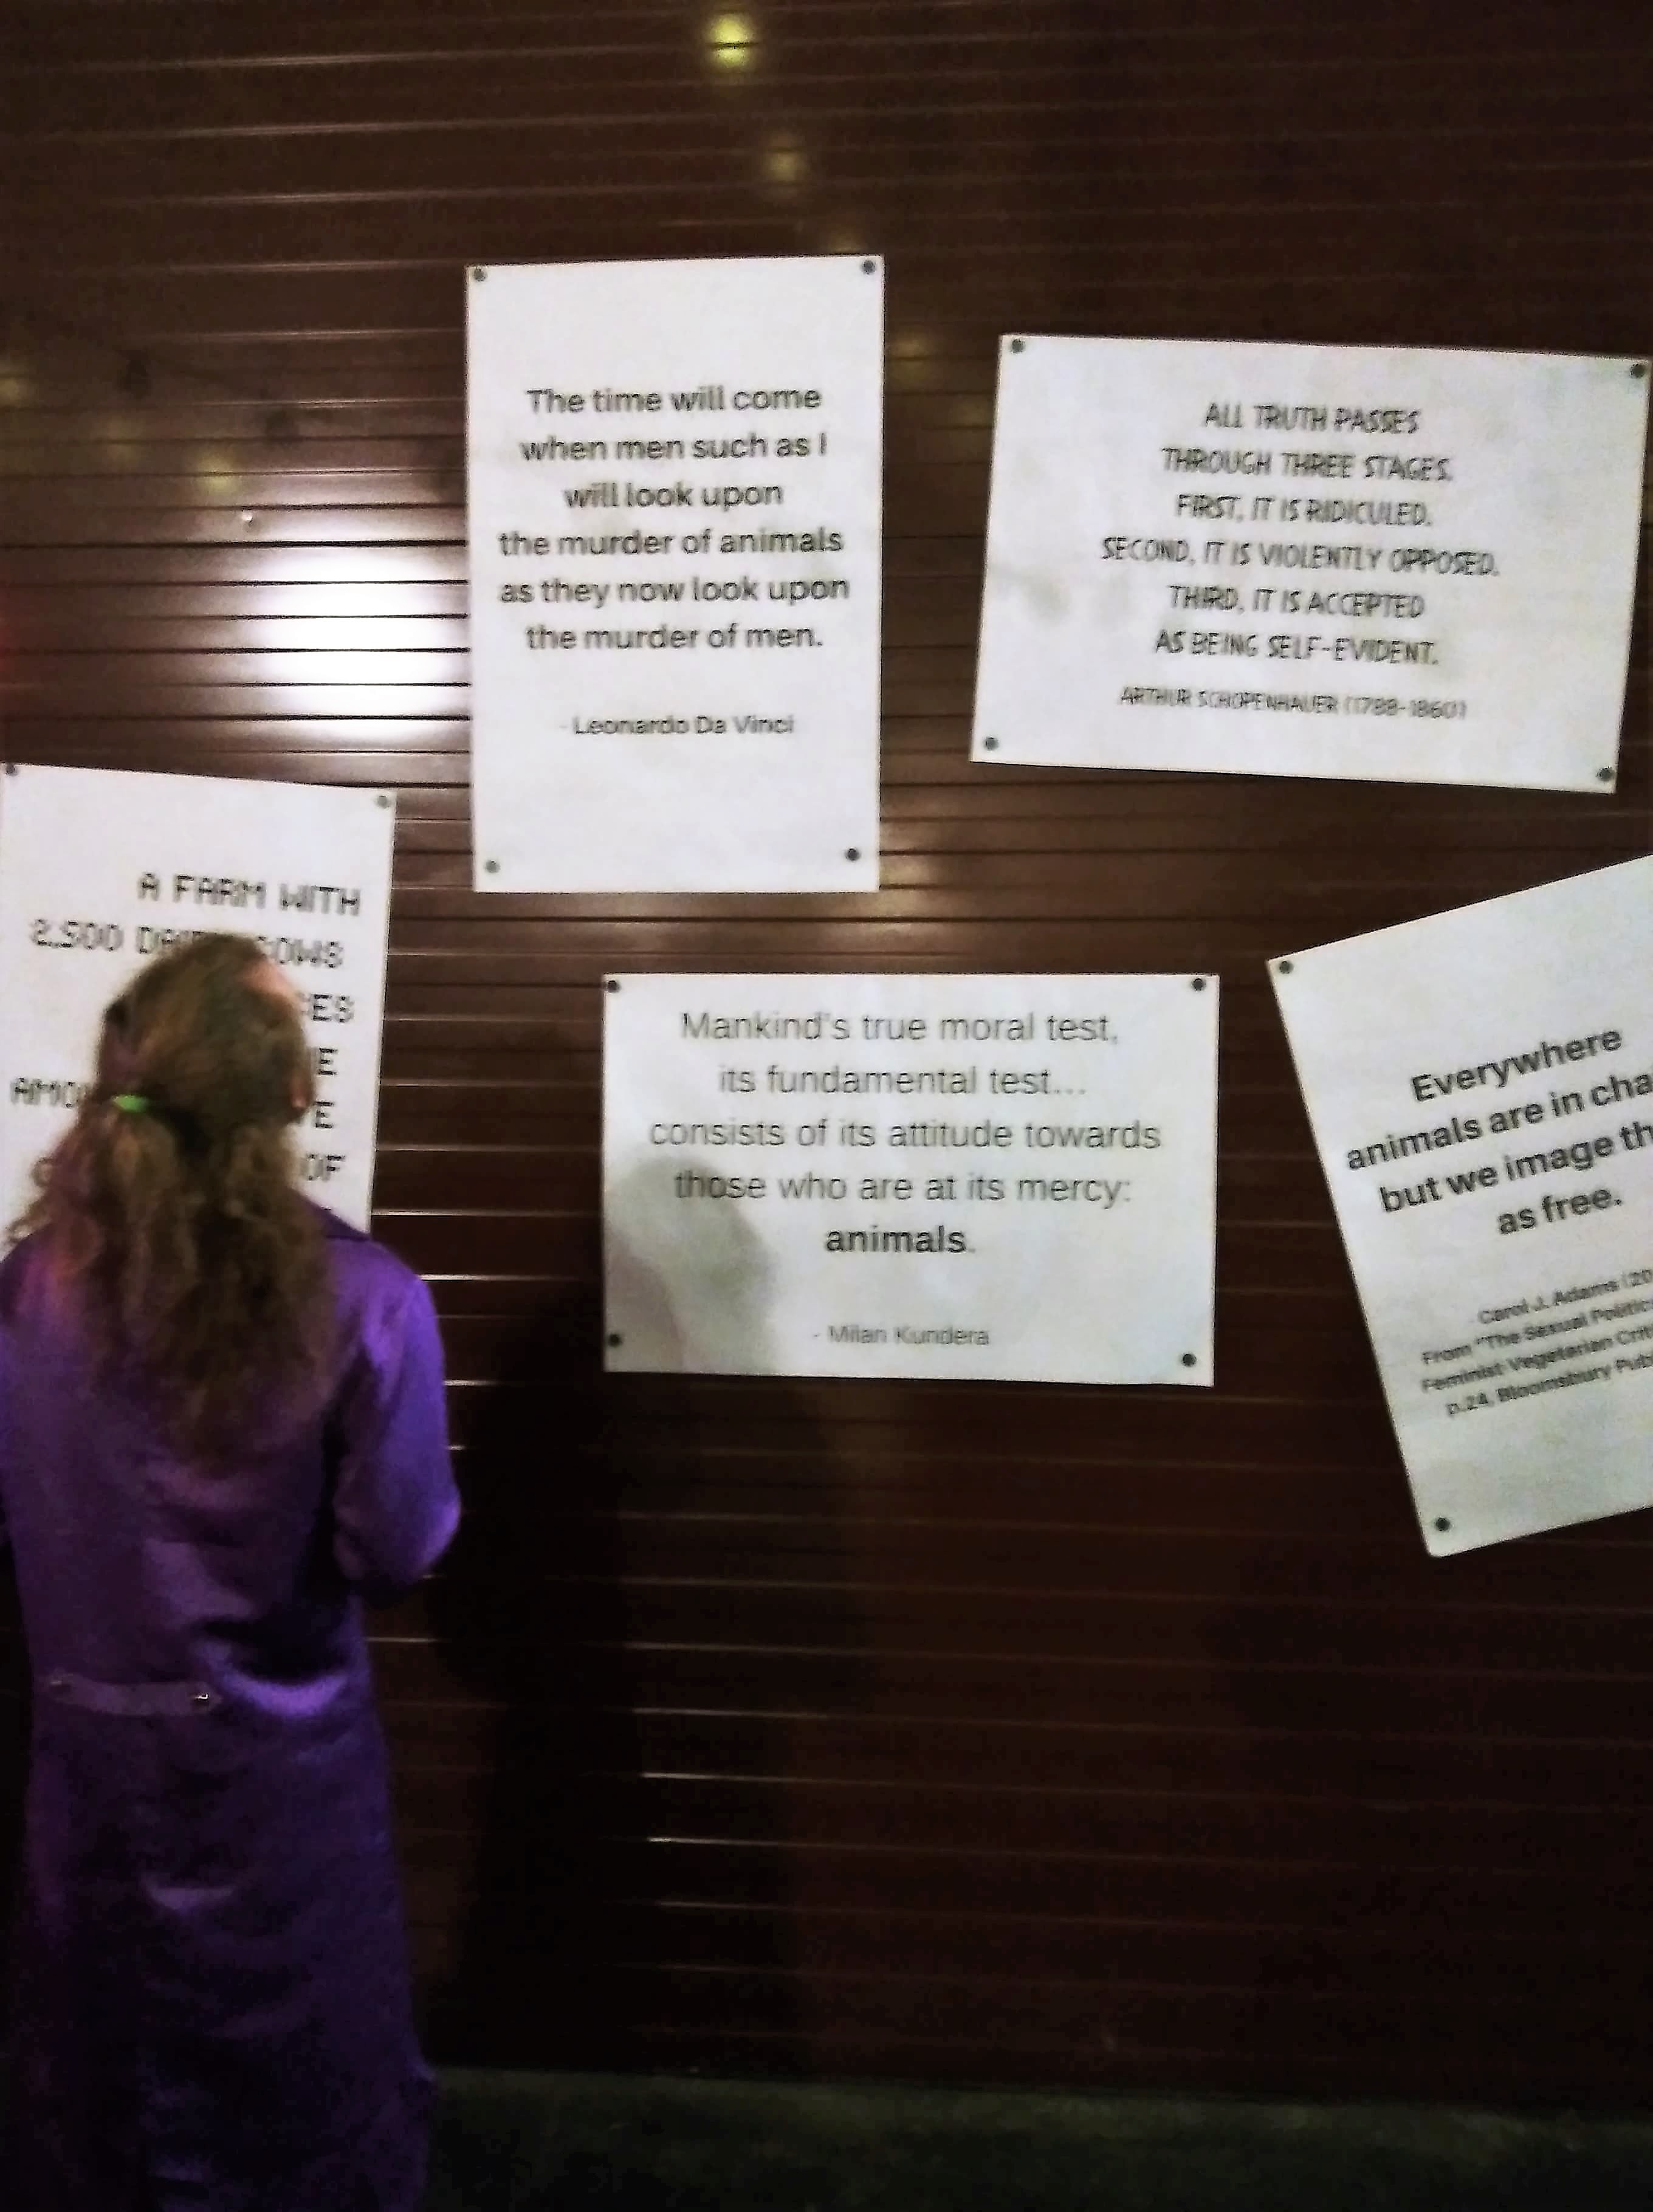 The time will come
when men such as I
will look upon
the murder of animals
as they now look upon
the murder of men.
- Leonardo Da Vinci
ALL TRUTH PASSES
THROUGH THREE STAGES.
FIRST, IT IS RIDICULED.
SECOND, IT IS VIOLENTLY OPPOSED.
THIRD, IT IS ACCEPTED
AS BEING SELF-EVIDENT.
ARTHUR SCHOPENHAUER (1788-1860)
A FARM WITH
2,500
OF
Mankind's true moral test,
its fundamental test...
consists of its attitude towards
those who are at its mercy:
animals.
- Milan Kundera
Everywhere
animals are in
but we image
as free.
Carol J. Adams
From "The Sexual
Feminist-Vegetarian
p.24, Bloomsbury